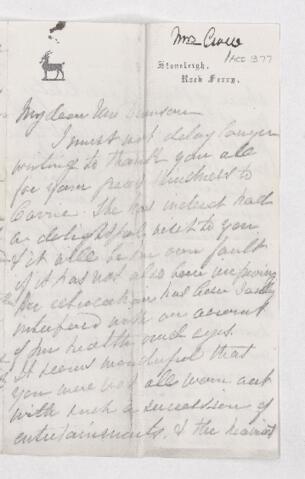 Mrs Crow
ACC 377
Stoneleigh,
Rock Ferry.
My dear Mrs
I must not delay longer
writing to thank you all
for your great kindness to
Carrie. She has indeed had
a delightful visit to you
& it will be her own fault
if it has not also been improving
her education has been sadly
interfered with on account
of her health and eyes.
It seems wonderful that
you were not all worn out
with such a succession of
entertainments, & the